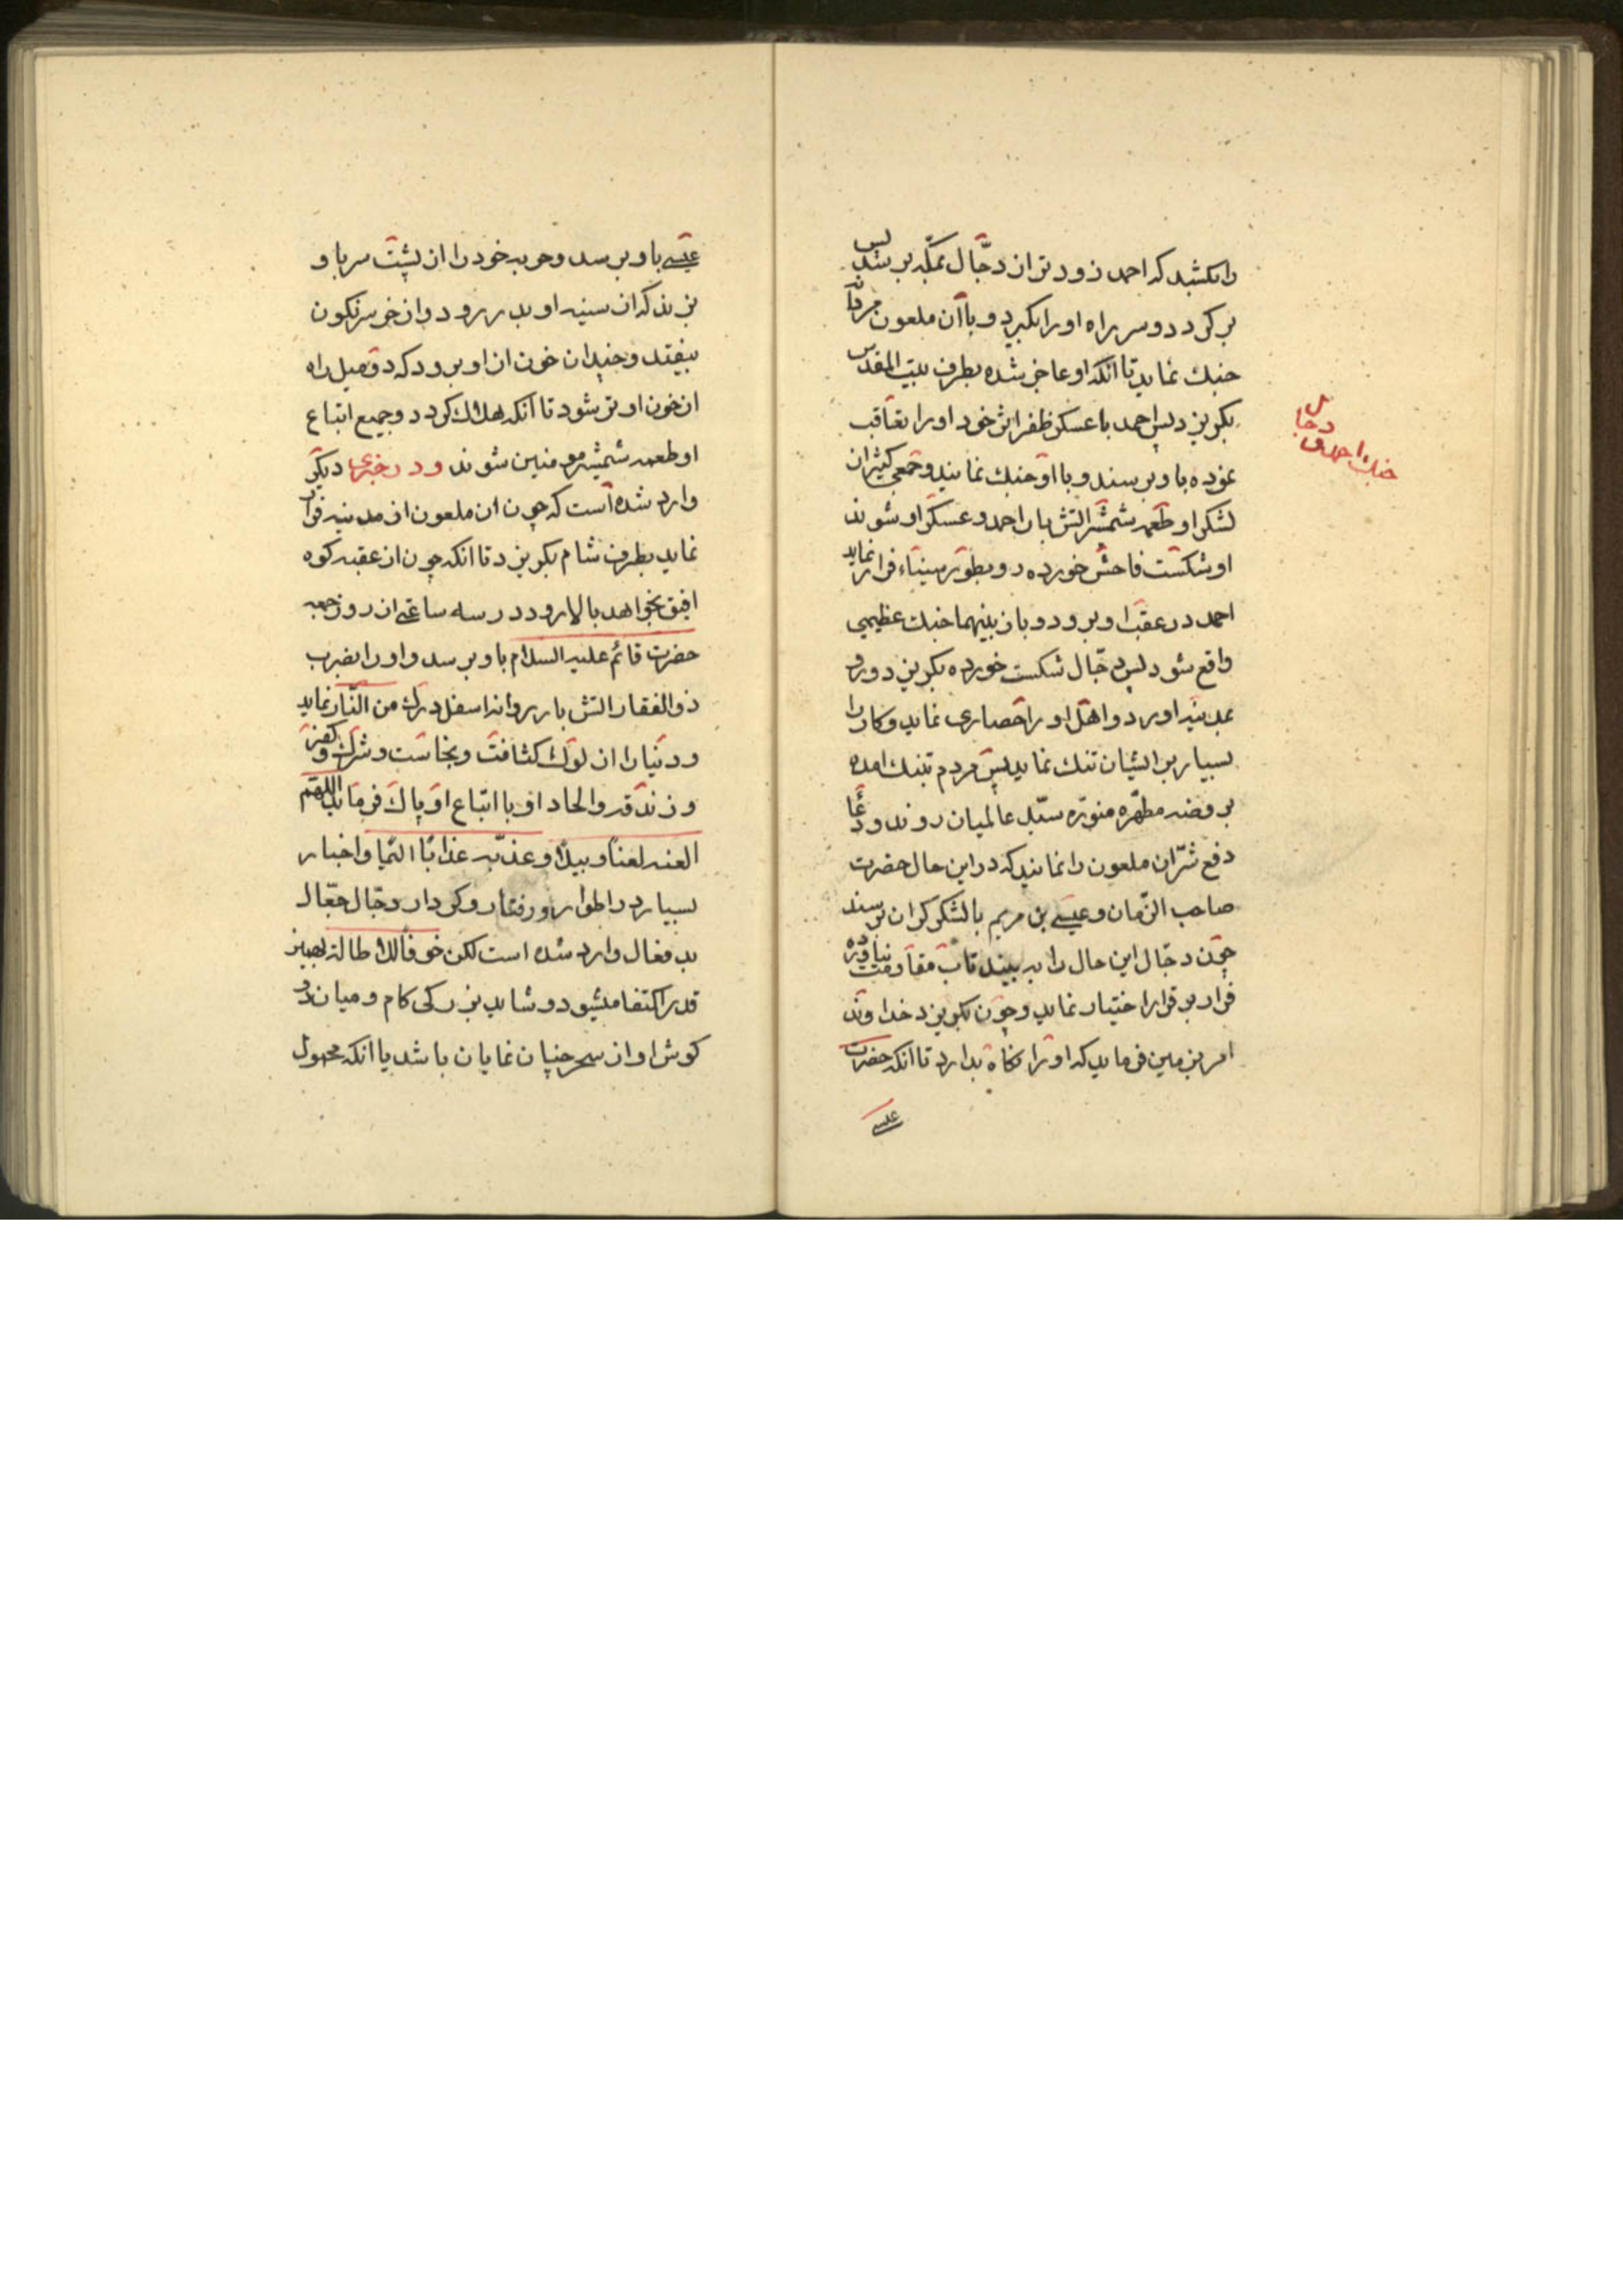 را بکشد که احمد زودتر از دجّال بمکّه برسد پس
برگردد و سر راه او را بگیرد و با آن ملعون مردانه
جنک نماید تا آنکه او عاجز شده بطرف بیت المقدس
بگریزد پس احمد با عسکر ظفر اثر خود او را تعاقب
نموده باو برسند و با او جنک نمایند و جمعی کثیر از
لشکر او طعمه شمشیر آتش بار احمد و عسکر او شوند
او شکست فاحش خورده رو بطور سیناء فرار نماید
احمد در عقب او برود و باز بینهما جنک عظیمی
واقع شود پس دجّال شکست خورده بگریزد و رو
بمدینه آورد و اهل او را حصاری نماید و کار را
بسیار بر ایشان تنک نماید پس مردم تنبک آمده
بروضه مطهّره منوّره سیّد عالمیان روند و دعا
دفع شرّ آن ملعون را نمایند که در این حال حضرت
صاحب الزّمان و عیسی بن مریم با لشکر کران برسند
چون دجّال این حال را به بیند تاب مقاومت نیاورده
فرار بر قرار اختیار نماید و چون بگریزد خداوند
امر بزمین فرماید که او را نکاه بدارد تا آنکه حضرت
عیسی
جنک احمد و
دجال
عیسی باو برسد و حربه خود را از پشت سر باو
بزند که از سینه او بدر رود و از خر سرنکون
بیفتد و چندان خون از او برود که دو میل راه
از خون او تر شود تا آنکه هلاک کردد و جمیع اتباع
او طعمه شمشیر مومنین شوند و در خبری دیگر
وارد شده است که چون آن ملعون از مدینه فرار
نماید بطرف شام بگریزد تا آنکه چون از عقبه کوه
افیق بخواهد بالا رود در سه ساعتی از روز جمعه
حضرت قائم علیه السلام باو برسد و او را بضرب
ذو الفقار آتش بار روانه اسفل درک من النّار نماید
و دنیا را از لوث کثافت و نجاست و شرک و کفر
و زندقه و الحاد او با اتّباع او پاک فرماید اللهم
العنه لعنًا وبیلًا و عذّبه عذابًا الیمًا و اخبار
بسیار در اطوار و رفتار و کردار دجّال جعّال
بد فعال وارد شده است لکن خوفا للاطالة بهمین
قدر اکتفا میشود و شاید بزرکی کام و میان دو
کوش او از سحر چنان نمایان باشد یا آنکه محمول